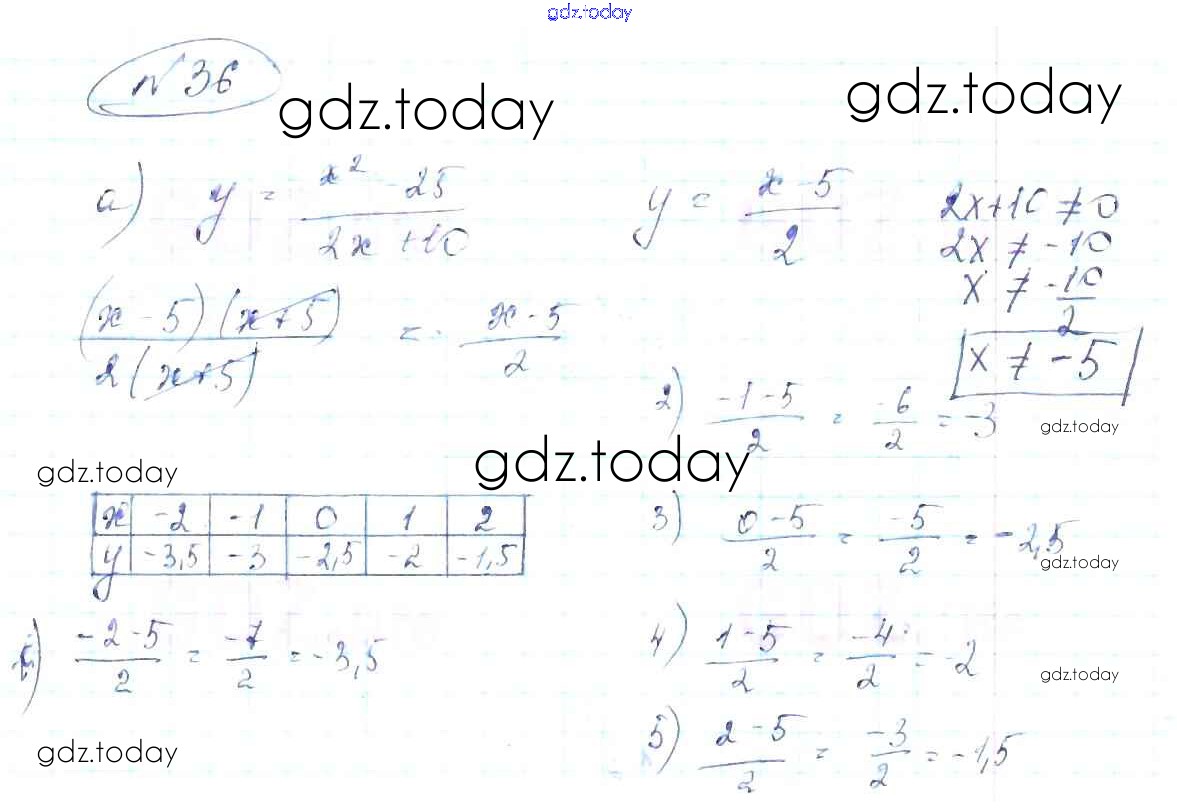 gdz.today
№ 36
gdz.today
gdz.today
а) y = (x² - 25)/(2x + 10)
y = (x - 5)/2
2x+10 ≠ 0
2x ≠ -10
x ≠ -10/2
x ≠ -5
((x - 5)(x+5))/(2(x+5)) = (x - 5)/2
2) (-1-5)/2 = -6/2 = -3
gdz.today
gdz.today
gdz.today
x -2 -1 0 1 2
y -3,5 -3 -2,5 -2 -1,5
3) (0-5)/2 = -5/2 = -2,5
gdz.today
1) (-2-5)/2 = -7/2 = -3,5
4) (1-5)/2 = -4/2 = -2
gdz.today
5) (2-5)/2 = -3/2 = -1,5
gdz.today